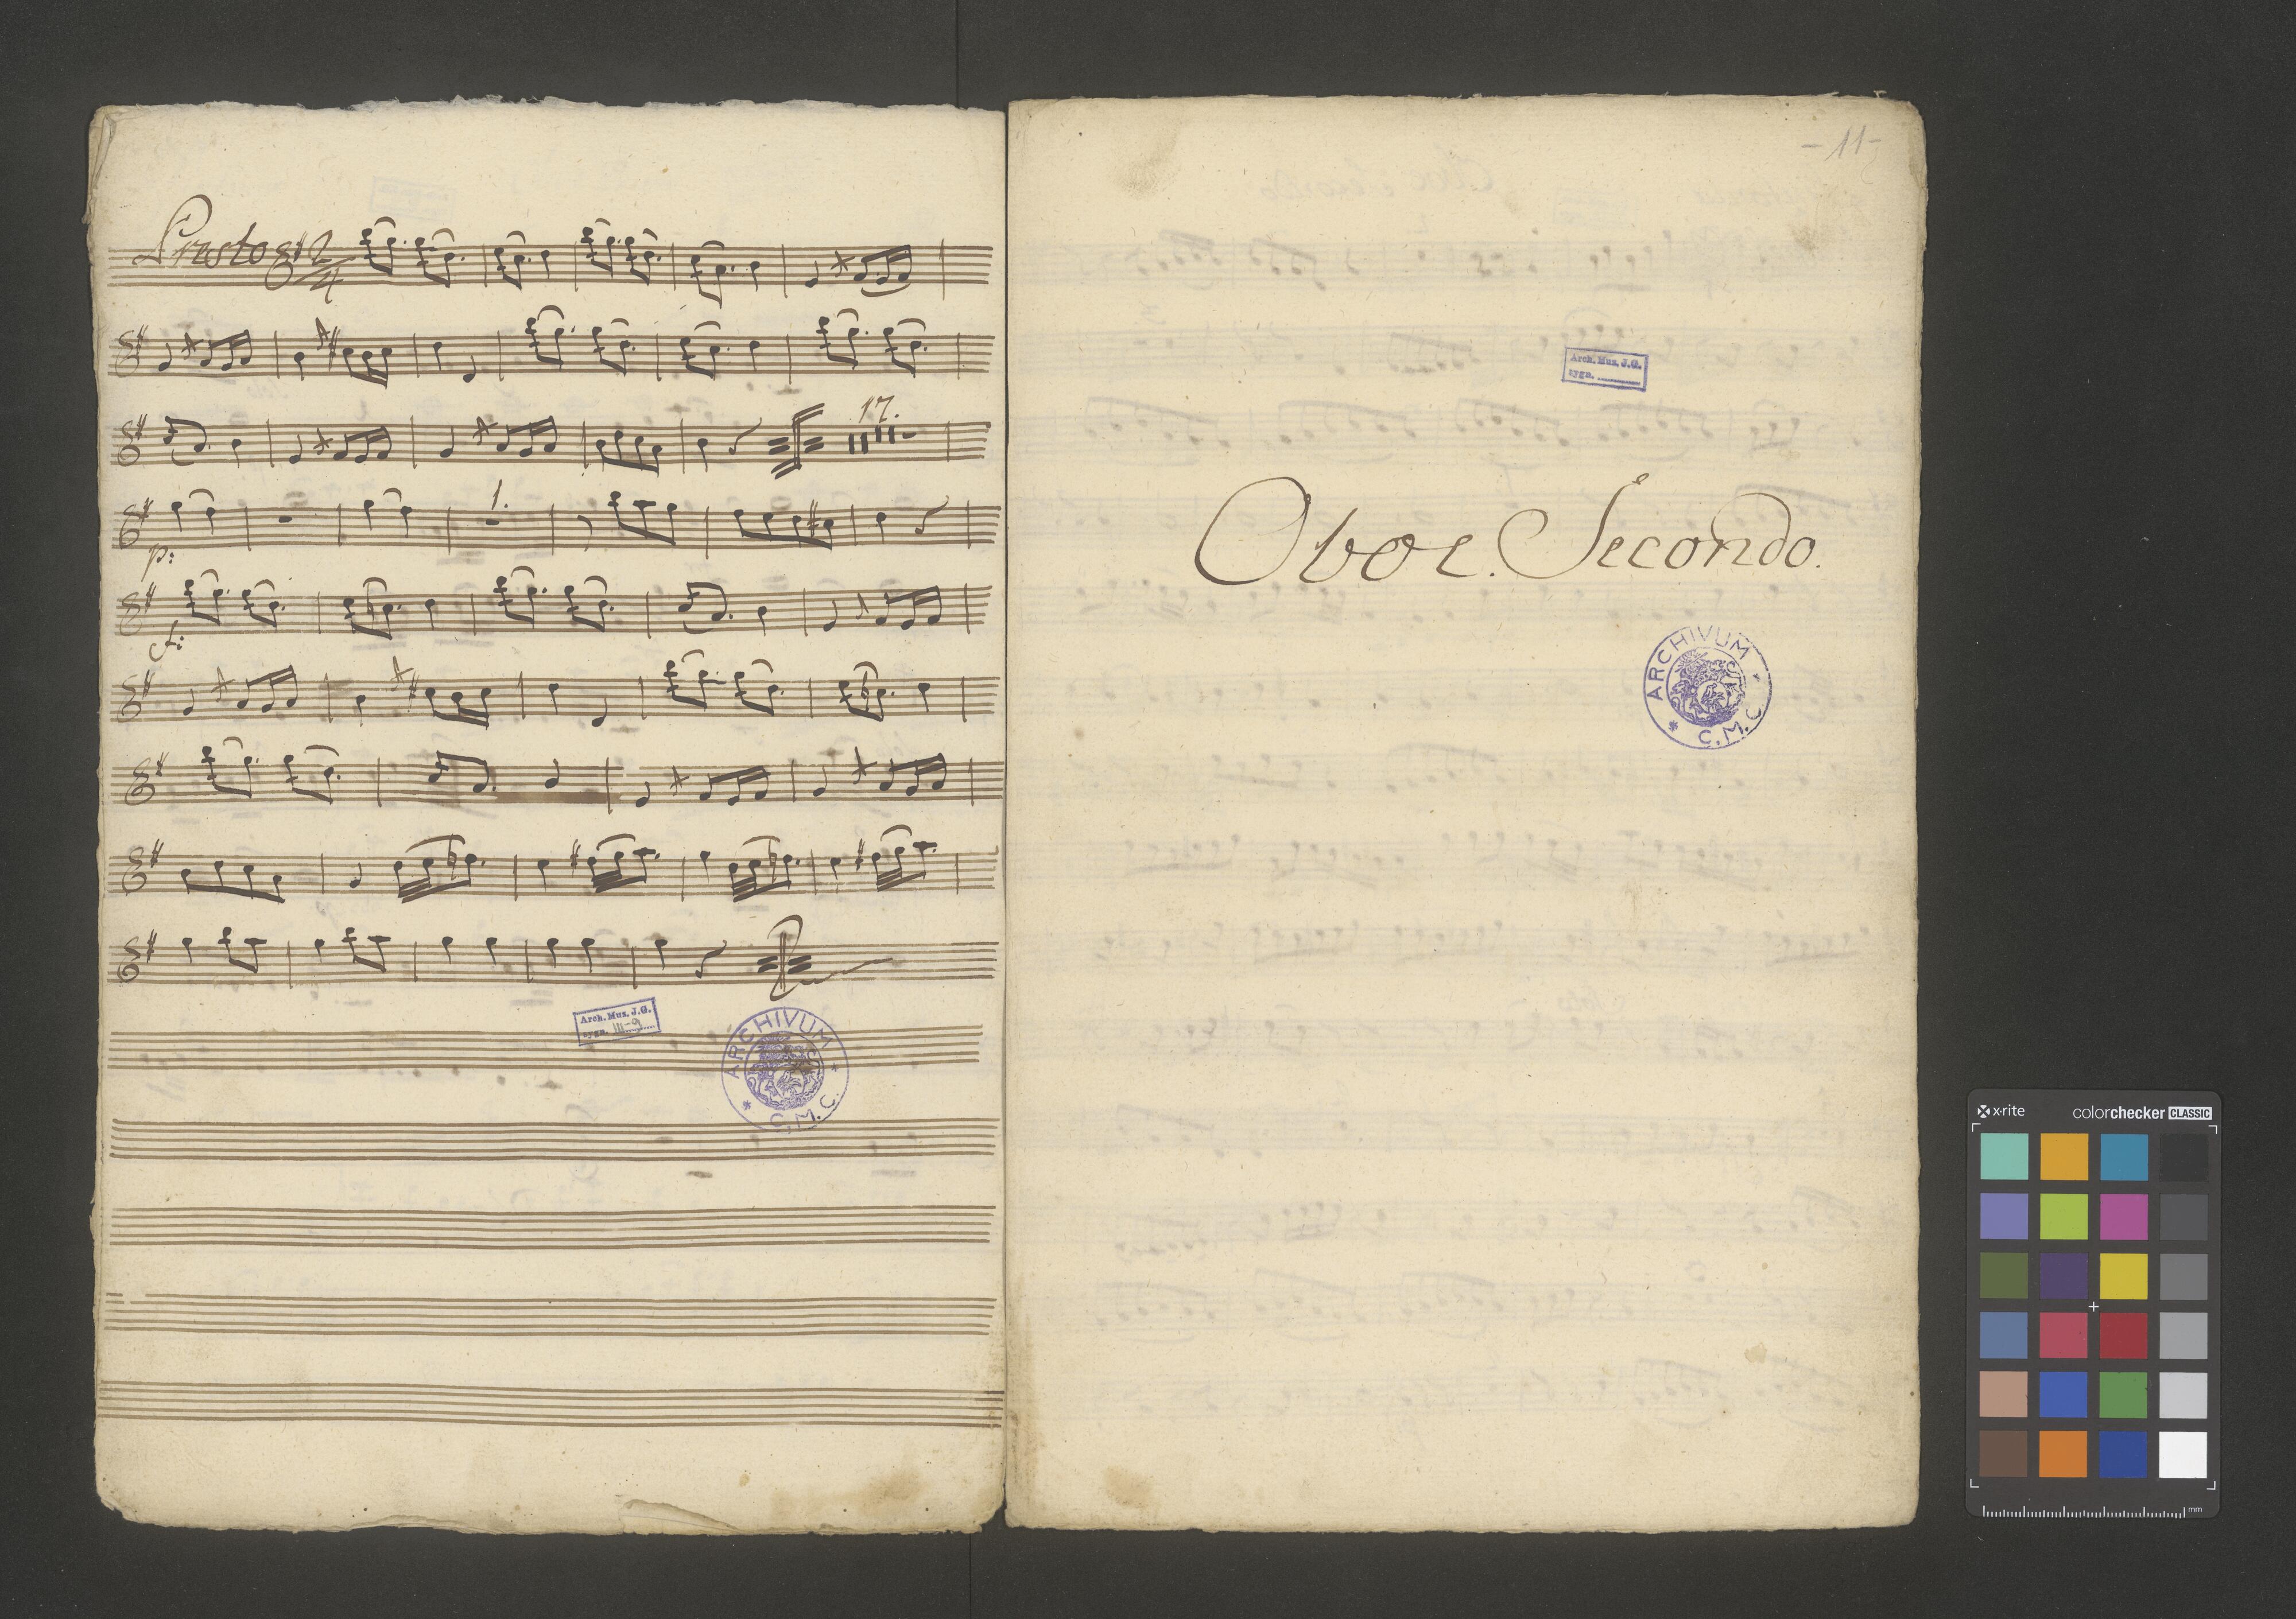 Presto 2/4
17.
p:
1.
f:
Arch. Mus. J.G.
sygn. III-9
ARCHIVUM
C.M.C.
- 11 -
Arch. Mus. J.G.
sygn.
Oboe. Secondo.
ARCHIVUM
C.M.C.
x-rite
colorchecker CLASSIC
mm